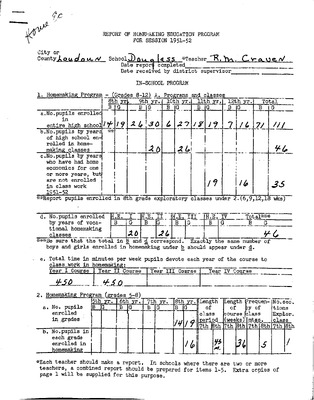 Home Ec
REPORT OF HOME-MAKING EDUCATION PROGRAM
FOR SESSION 1951-52
City or
County Loudoun School Douglass *Teacher R.M. Craven
Date report completed
Date received by district supervisor
IN-SCHOOL PROGRAM
1. Homemaking Program - (Grades 8-12) A. Programs and classes
8th yr. 9th yr. 10th yr. 11th yr. 12th yr. Total
B G B G B G B G B G B G
a. No. pupils enrolled
in
entire high school 14 19 26 30 6 27 18 19 7 16 71 111
b. No. pupils by years
of high school en-
rolled in home-
making classes 20 26 46
c. No. pupils by years
who have had home
economics for one
or more years, but
are not enrolled
in class work
1951-52 19 16 35
**Report pupils enrolled in 8th grade exploratory classes under 2.(6,9,12,18 wks)
d. No. pupils enrolled H.E. I H.E. II H.E. III H.E. IV Total***
by years of voca- B G B G B G B G B G
tional homemaking
classes 20 26 46
***Be sure that the total in b and d correspond. Exactly the same number of
boys and girls enrolled in homemaking under b should appear under d.
e. Total time in minutes per week pupils devote each year of the course to
class work in homemaking:
Year I Course Year II Course Year III Course Year IV Course
450 450
2. Homemaking Program (grades 5-8)
5th yr. 6th yr. 7th yr. 8th yr. Length Length Frequen- No. sec.
B G B G B G B G of of cy of tions
a. No. pupils class course class Explor.
enrolled period (weeks) class
in grades 14 19 7th 8th 7th 8th 7th 8th 7th 8th
b. No. pupils in
each grade
enrolled in
homemaking 16 36 5 1
*Each teacher should make a report. In schools where there are two or more
teachers, a combined report should be prepared for items 1-5. Extra copies of
page 1 will be supplied for this purpose.